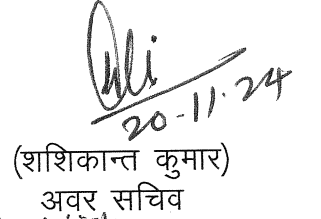 20-11-24
(शशिकान्त कुमार)
अवर सचिव